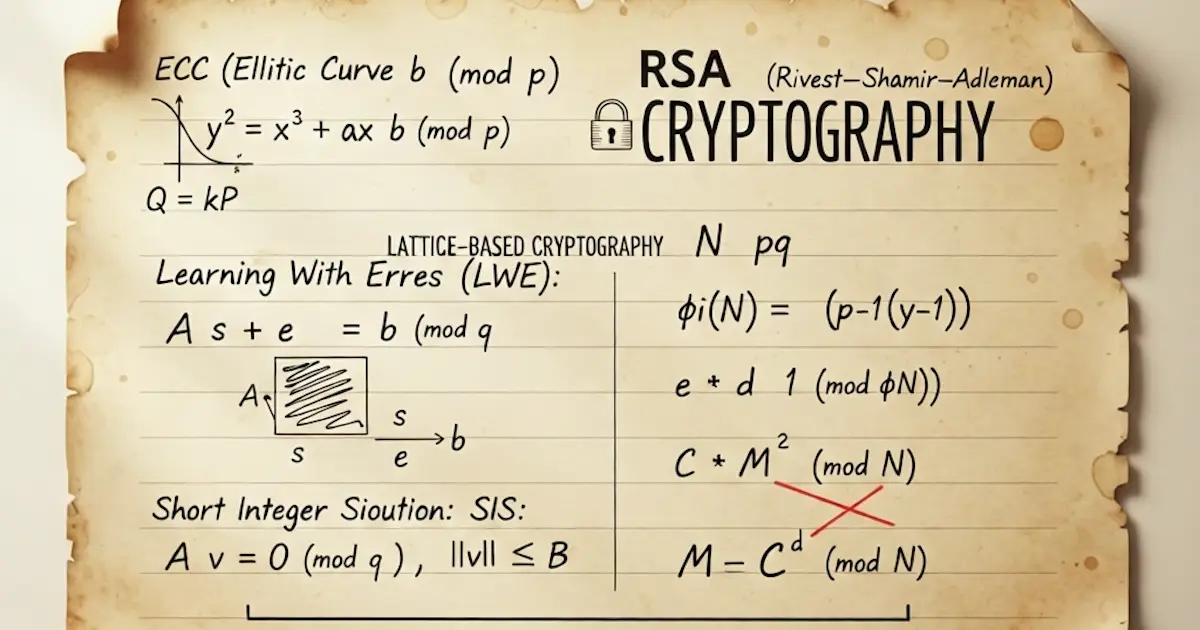 ECC (Ellitic Curve b (mod p)
y² = x³ + ax b (mod p)
Q = kP
RSA (Rivest–Shamir–Adleman)
CRYPTOGRAPHY
LATTICE-BASED CRYPTOGRAPHY
Learning With Erres (LWE):
A s + e = b (mod q
A
s
s
e
b
Short Integer Sioution: SIS:
A v = 0 (mod q ), ||v|| ≤ B
N pq
ϕi(N) = (p-1(y-1))
e * d 1 (mod ϕN))
C * M² (mod N)
M – Cᵈ (mod N)